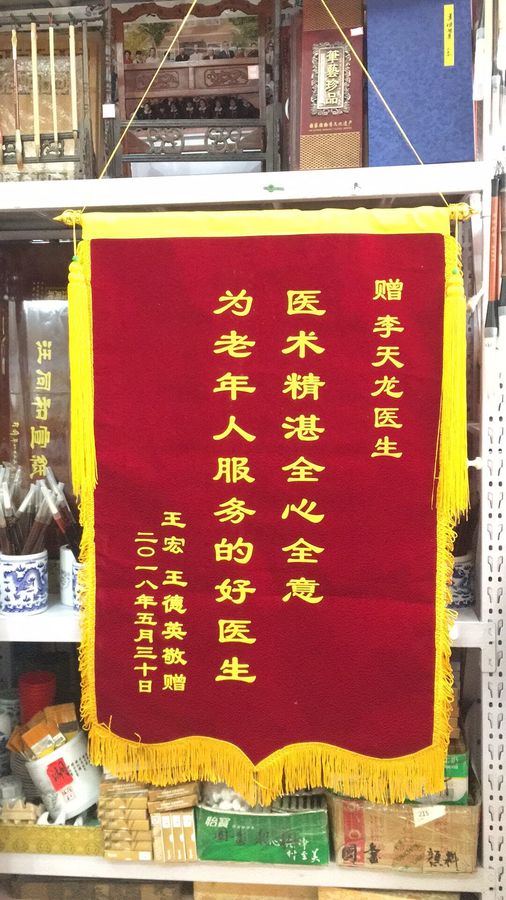 赠李天龙医生
医术精湛全心全意
为老年人服务的好医生
王宏 王德英敬赠
二〇一八年五月三十日
笔艺珍品
汪同和宣纸
怡宝
国画颜料
215